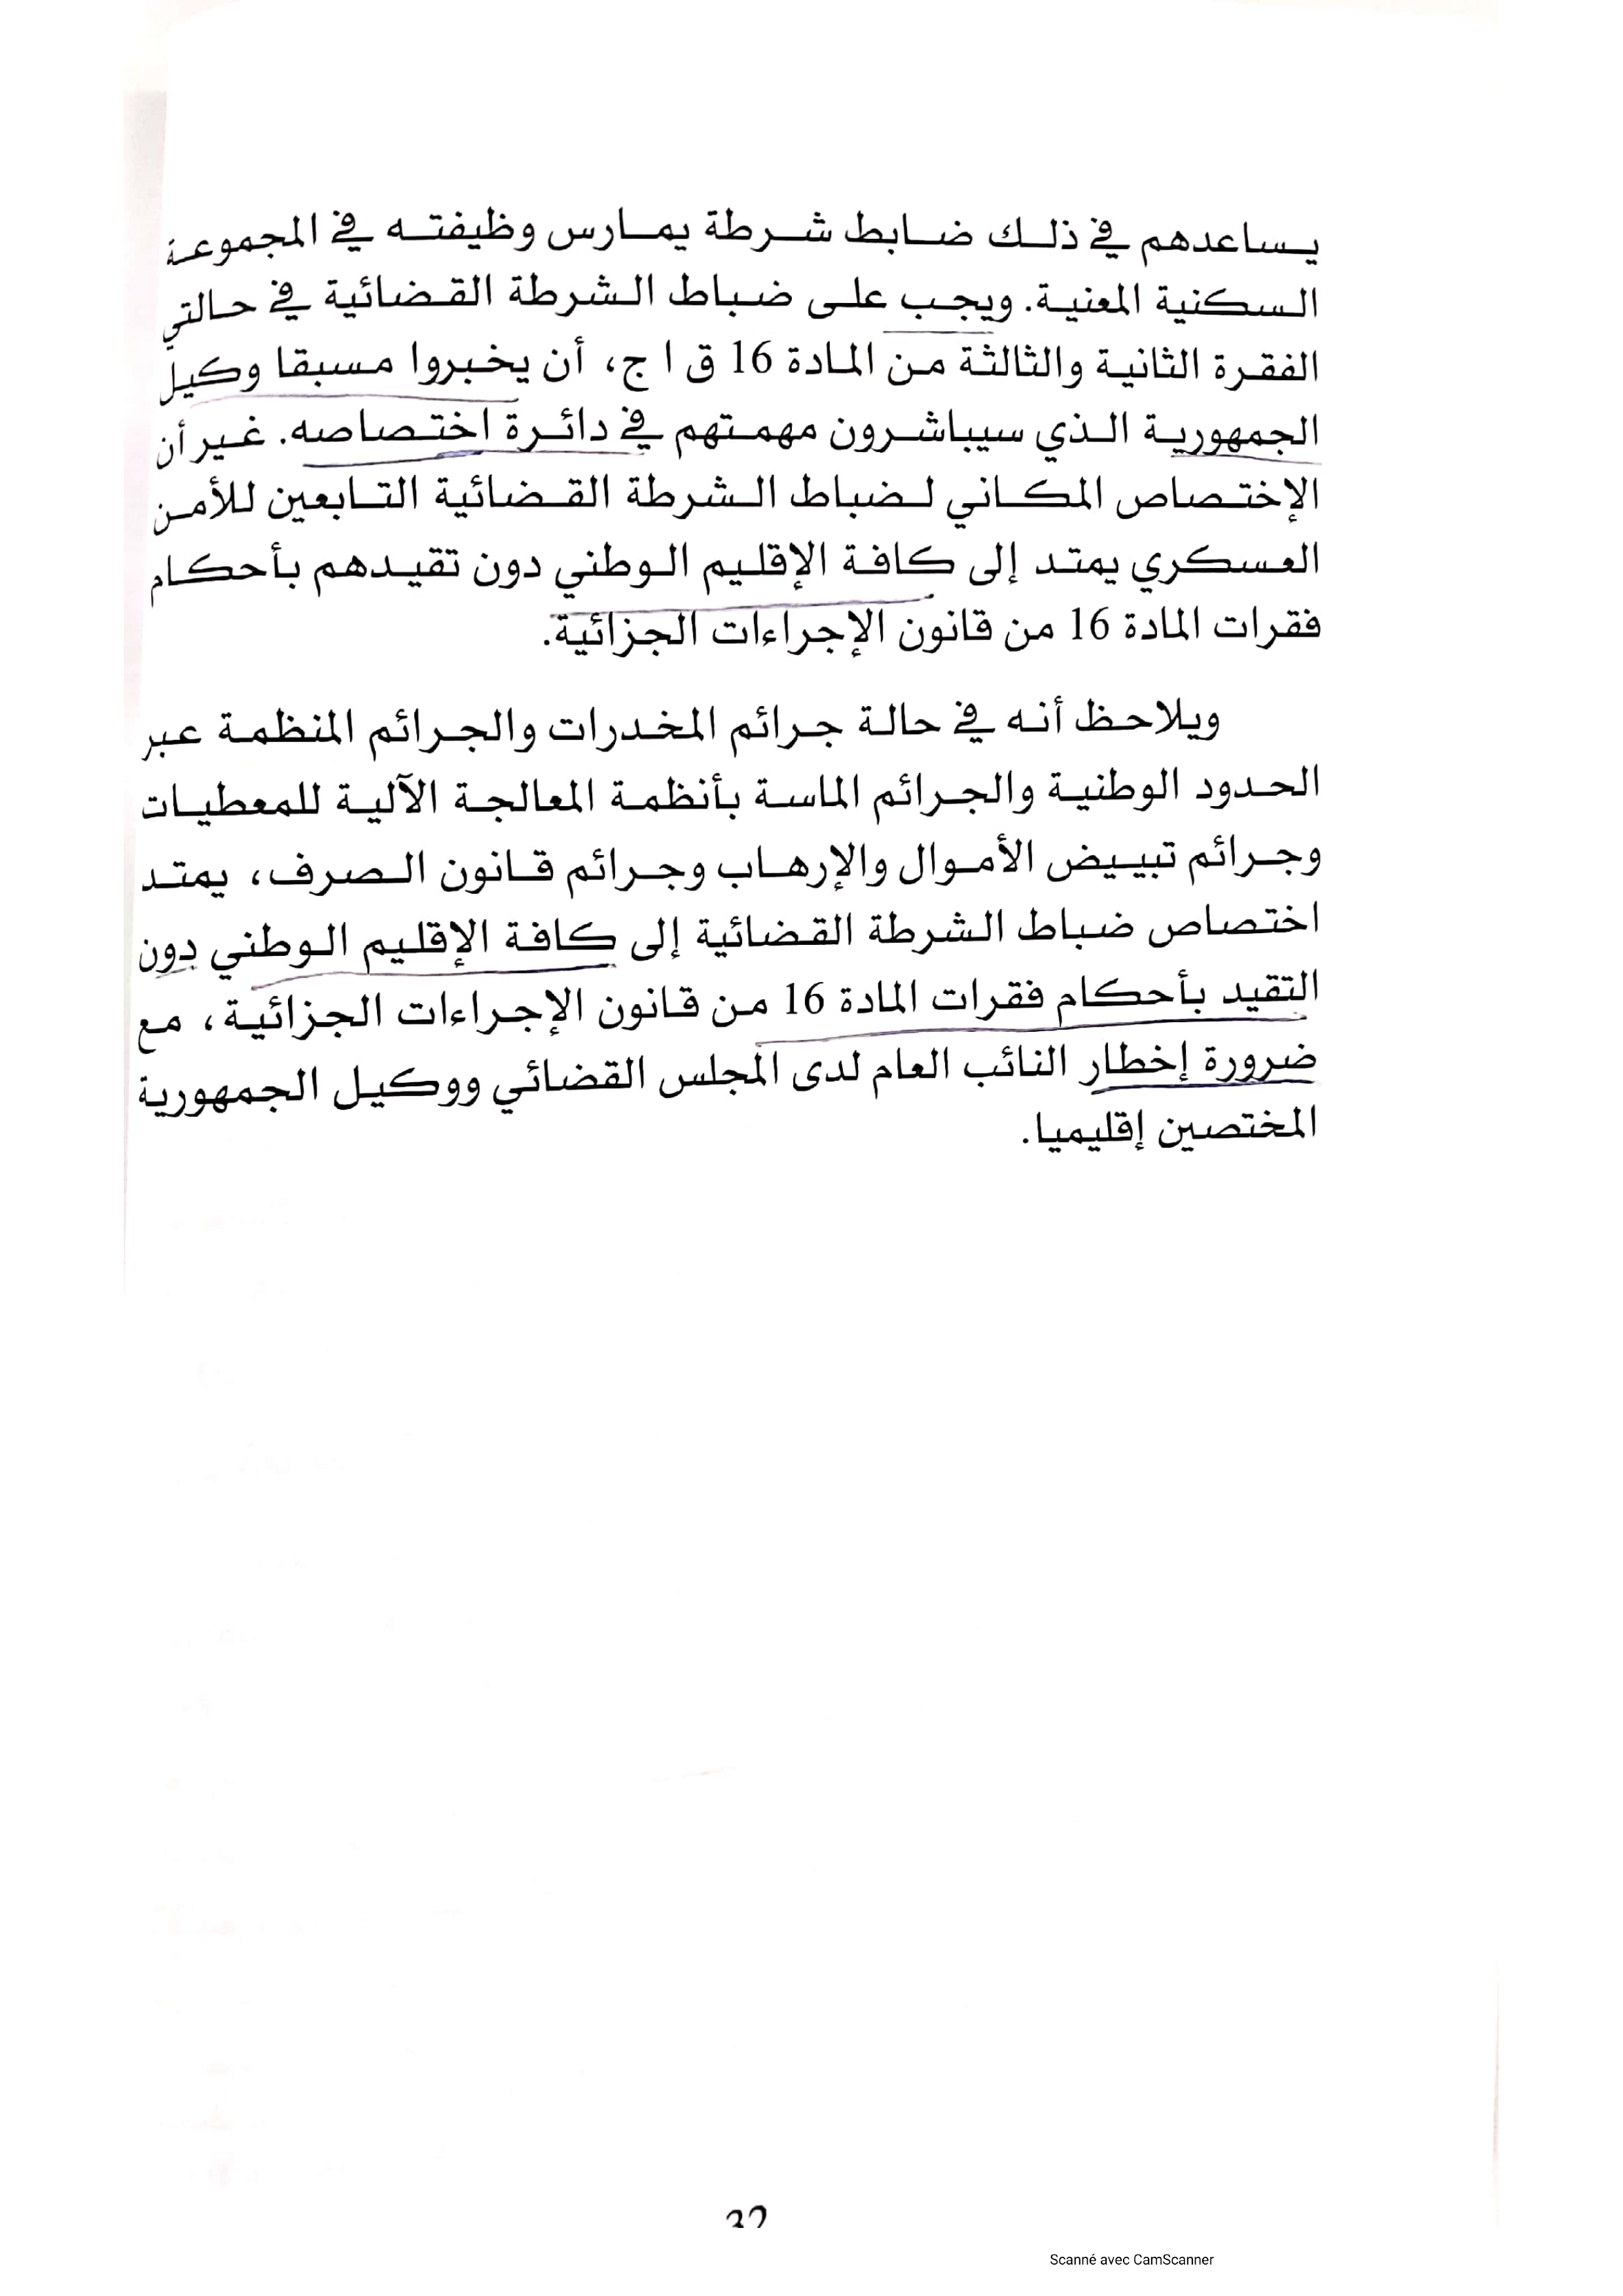 يساعدهم في ذلك ضابط شرطة يمارس وظيفته في المجموعة
السكنية المعنية. ويجب على ضباط الشرطة القضائية في حالتي
الفقرة الثانية والثالثة من المادة 16 ق ا ج، أن يخبروا مسبقا وكيل
الجمهورية الذي سيباشرون مهمتهم في دائرة اختصاصه. غير أن
الإختصاص المكاني لضباط الشرطة القضائية التابعين للأمن
العسكري يمتد إلى كافة الإقليم الوطني دون تقيدهم بأحكام
فقرات المادة 16 من قانون الإجراءات الجزائية.
ويلاحظ أنه في حالة جرائم المخدرات والجرائم المنظمة عبر
الحدود الوطنية والجرائم الماسة بأنظمة المعالجة الآلية للمعطيات
وجرائم تبييض الأموال والإرهاب وجرائم قانون الصرف، يمتد
اختصاص ضباط الشرطة القضائية إلى كافة الإقليم الوطني دون
التقيد بأحكام فقرات المادة 16 من قانون الإجراءات الجزائية، مع
ضرورة إخطار النائب العام لدى المجلس القضائي ووكيل الجمهورية
المختصين إقليميا.
32
Scanné avec CamScanner